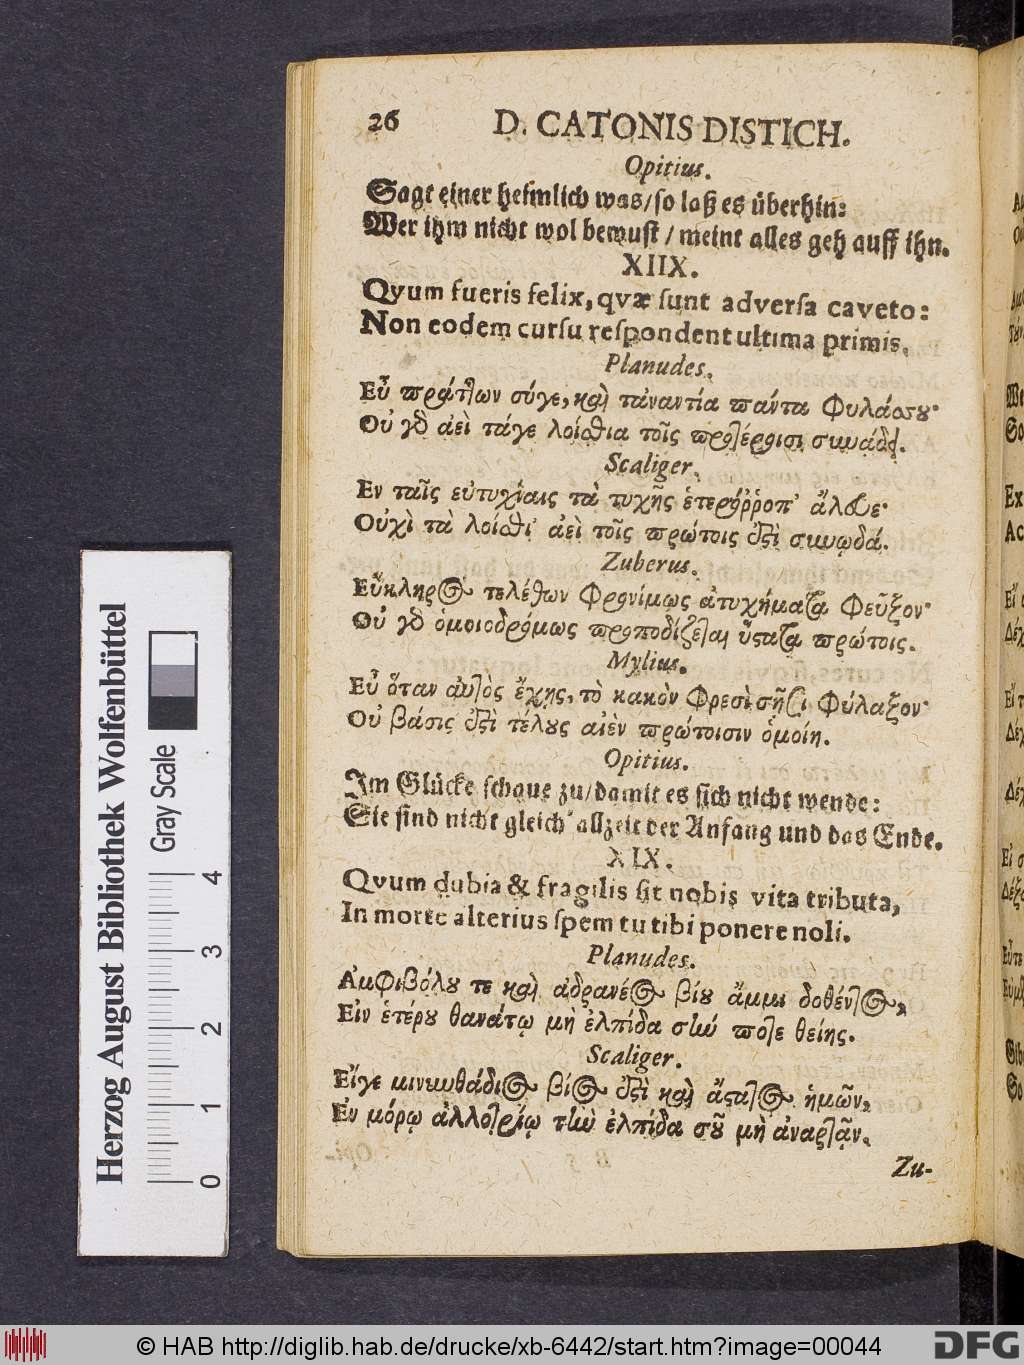 26 D. CATONIS DISTICH.
Opitius.
Sagt einer heimlich was/ so laß es überhin:
Wer ihm nicht wol bewust / meint alles geh auff ihn.
XIIX.
Qvum fueris felix, qvæ sunt adversa caveto:
Non eodem cursu respondent ultima primis.
Planudes.
Εὖ πράττων σύγε, καὶ τἀναντία πάντα φυλάσσου·
Οὐ γὸ ἀεὶ τάγε λοίσθια τοῖς προτέροισι συνάδει.
Scaliger.
Εν ταῖς εὐτυχίαις τὰ τυχῆς ἑτερόῤῥοπ' ἄλευε·
Οὐχὶ τὰ λοίσθι' ἀεὶ τοῖς πρώτοις ἐστὶ συνῳδά.
Zuberus.
Εὔκληρος τελέθων φρονίμως ἀτυχήματα φεῦξον·
Οὐ γὸ ὁμοιοδρόμως προποδίζεται ὕστατα πρώτοις.
Mylius.
Εὖ ὅταν αὐτὸς ἔχῃς, τὸ κακὸν φρεσὶ σῇσι φύλαξον·
Οὐ βάσις ἐστὶ τέλους αἰὲν πρώτοισιν ὁμοίη.
Opitius.
Im Glücke schaue zu/ damit es sich nicht wende:
Sie sind nicht gleich allzeit der Anfang und das Ende.
XIX.
Qvum dubia & fragilis sit nobis vita tributa,
In morte alterius spem tu tibi ponere noli.
Planudes.
Αμφιβόλου τε καὶ ἀδρανέος βίου ἄμμι δοθέντος,
Εἰν ἑτέρου θανάτῳ μὴ ἐλπίδα σὴν ποτε θείης.
Scaliger.
Εἴγε μινυνθάδιος βίος ἐστὶ καὶ ἄστατος ἡμῶν,
Ἐν μόρῳ ἀλλοτρίῳ τὴν ἐλπίδα σοῦ μὴ ἀναρτᾷν.
Zu-
Herzog August Bibliothek Wolfenbüttel
Gray Scale
0 1 2 3 4
© HAB http://diglib.hab.de/drucke/xb-6442/start.htm?image=00044
DFG